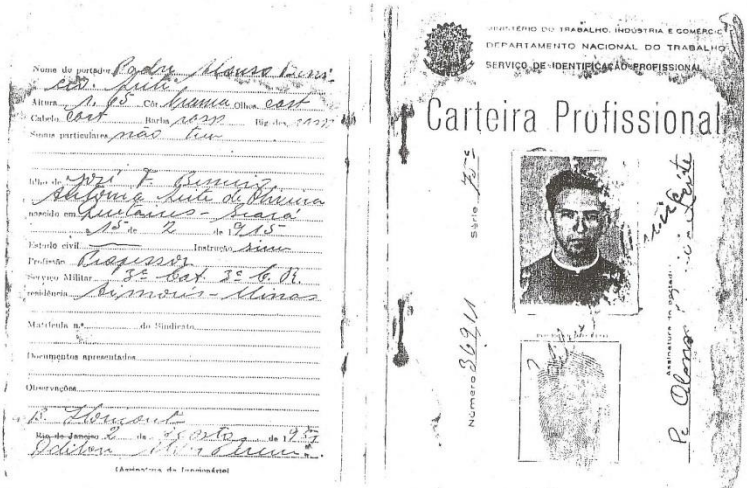 Nome do portador Padre Alonso
Leite
Altura 1.65 Côr branca Olhos cast
Cabelo cast Barba rasp Big. des.
Sinais particulares não tem
filho de José F.
Antonia Leite de Oliveira
nascido em - Ceará
a 15 de 2 de 1915
Estado civil Instrução sim
Profissão Professor
Serviço Militar 3ª Cat. 3ª C. R.
residência Aimorés - Minas
Matrícula n.º do Sindicato
Documentos apresentados
Observações
B. Horizonte
Rio de Janeiro 2 de agosto de 19
Odilon
(Assinatura do funcionário)
MINISTÉRIO DO TRABALHO, INDÚSTRIA E COMÉRCIO
DEPARTAMENTO NACIONAL DO TRABALHO
SERVIÇO DE IDENTIFICAÇÃO PROFISSIONAL
Carteira Profissional
Número 36911 Série
Assinatura do portador
Pe Alonso Leite